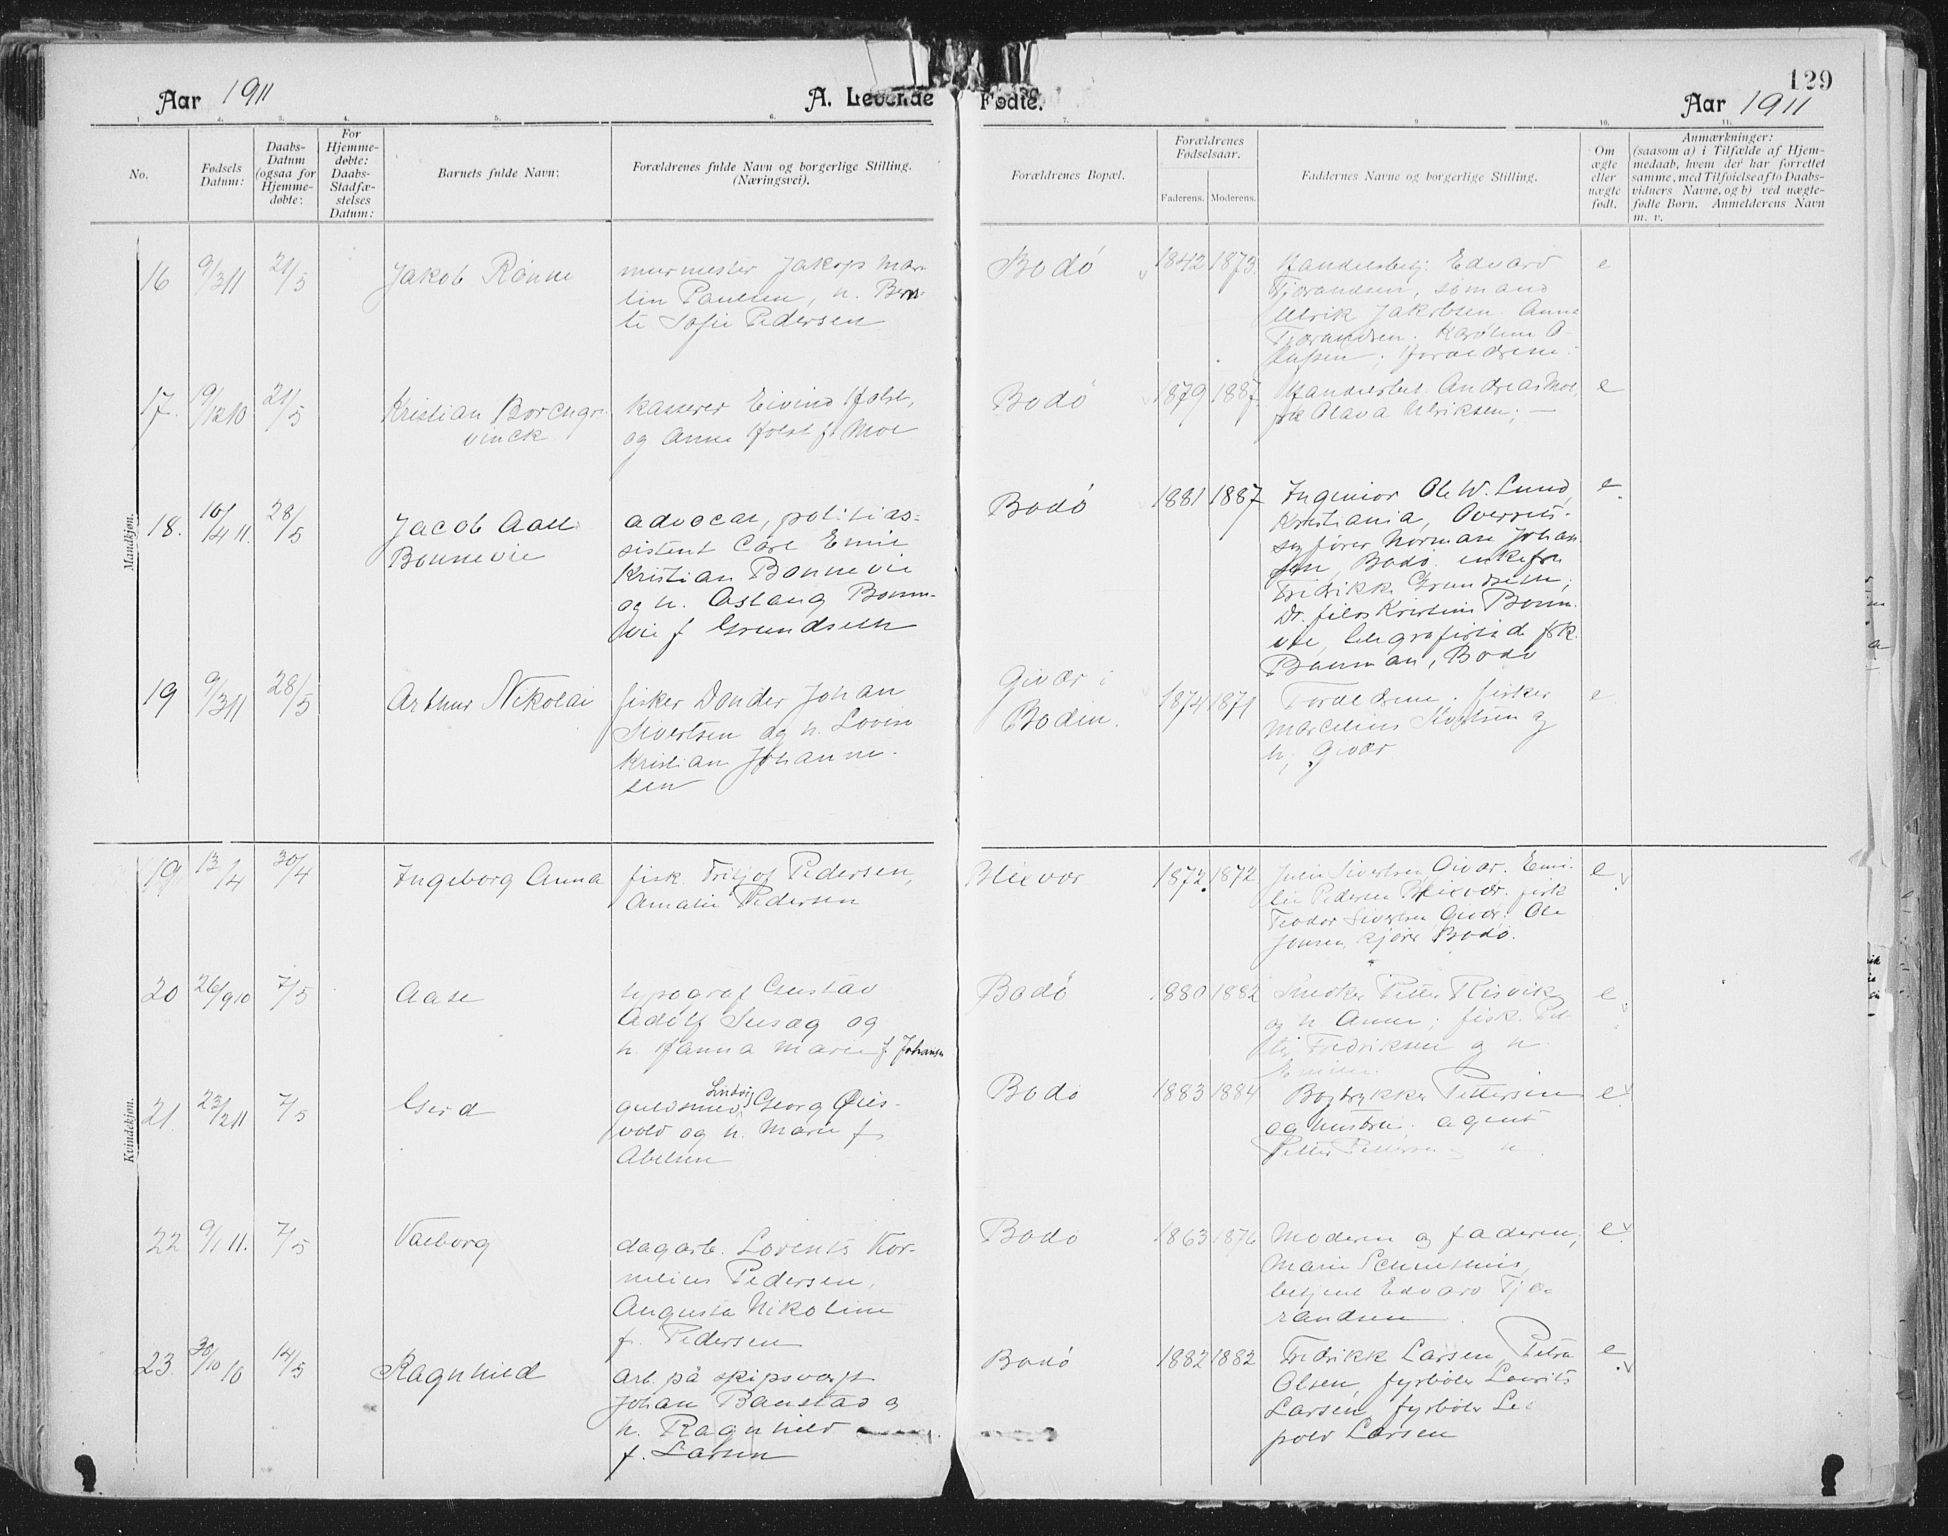 129
Aar 1911
A. Levende
Fødte.
Aar 1911
1. 2. 3. 4. 5. 6. 7. 8. 9. 10. 11.
No.
Fødsels
Datum:
Daabs-
Datum
(ogsaa for
Hjemme-
døbte:
For
Hjemme-
døbte:
Daabs-
Stadfæ-
stelses
Datum:
Barnets fulde Navn:
Forældrenes fulde Navn og borgerlige Stilling.
(Næringsvei).
Forældrenes Bopæl.
Forældrenes
Fødselsaar.
Faderens. Moderens.
Faddernes Navne og borgerlige Stilling.
Om
ægte
eller
uægte
født.
Anmærkninger:
(saasom a) i Tilfælde af Hjem-
medaab, hvem der har forrettet
samme, med Tilføielse af to Daabs-
vidners Navne, og b) ved uægte-
fødte Børn. Anmelderens Navn
m. v.
Mandkjøn.
16 9/3 11 21/5 Jakob Rönne
murmester Jakob Mar-
tin Paulsen, h. Bern-
te Sofie Pedersen
Bodö 1842 1873
Handelsbetj. Edvard
Tjærandsen, sömand
Ulrik Jakobsen. Anna
Tjærandsen. Karoline O-
lufsen; forældrene.
e
17. 9/12 10 21/5 Kristian Borchgre-
vinck
kasserer Eivind Holst,
og Anna Holst f. Moe
Bodö 1879 1887
Handelsbet. Andreas Moe,
frk Olava Ulriksen; —
e
18. 10/4 11. 28/5 Jacob Aall
Bonnevie
advocat, politias-
sistent Carl Emil
Kristian Bonnevie
og h. Aslaug Bonne-
vie f Grundseth
Bodö 1881 1887
Ingeniør Ole W. Lund,
Kristiania, Overrets-
sagfører Norman Johan-
sen, Bodö. enkefru
Fredrikke Grundseth;
Dr. filos Kristine Bonne-
vie, telegrafistinde frk.
Bauman, Bodö
e
19 9/3 11 28/5 Arthur Nikolai
fisker Donder Johan
Sivertsen og h. Lovise
Kristian Johanne-
sen
Givær i
Bodin. 1874 1871
Forældrene. fisker
Marcelius Sivertsen og
h, Givær
e
Kvindekjøn.
19 13/4 30/4 Ingeborg Anna
fisk. Fritjof Pedersen,
Amalie Pedersen
Blixvær 1872 1872
Julie Sivertsen, Givær. Emi-
lie Pedersen Blixvær. fisk
Teodor Sivertsen Givær. Ole
Jonsen, kjører Bodö.
e
20 26/9 10 7/5 Aase
typograf Gustav
Adolf Susag og
h. Hanna Marie f Johansen
Bodö 1880 1882
Snedker Petter Risvik
og h Anna; fisk. Pet-
ter Fredriksen og h.
e
21. 23/2 11 7/5 Gerd
guldsmed Ludvig Georg Øies-
vold og h. Marie f
Abelsen
Bodö 1883 1884
Bogtrykker Pettersen
og hustru. agent
Petter Pettersen og h.
e
22 9/1 11. 7/5 Valborg
dagarb. Lorents Kor-
nelius Pedersen,
Augusta Nikoline
f. Pedersen
Bodö 1863 1876
Moderen og faderen;
Marie
betjent Edvard Tjæ-
randsen
e
23. 30/10 10 14/5 Ragnhild
arb. på skipsværft
Johan Baustad og
h. Ragnhild
f. Larsen
Bodö 1882 1882
Fredrikk Larsen, Petra
Olsen, fyrböter Laurits
Larsen, fyrböter Leo-
pold Larsen
e